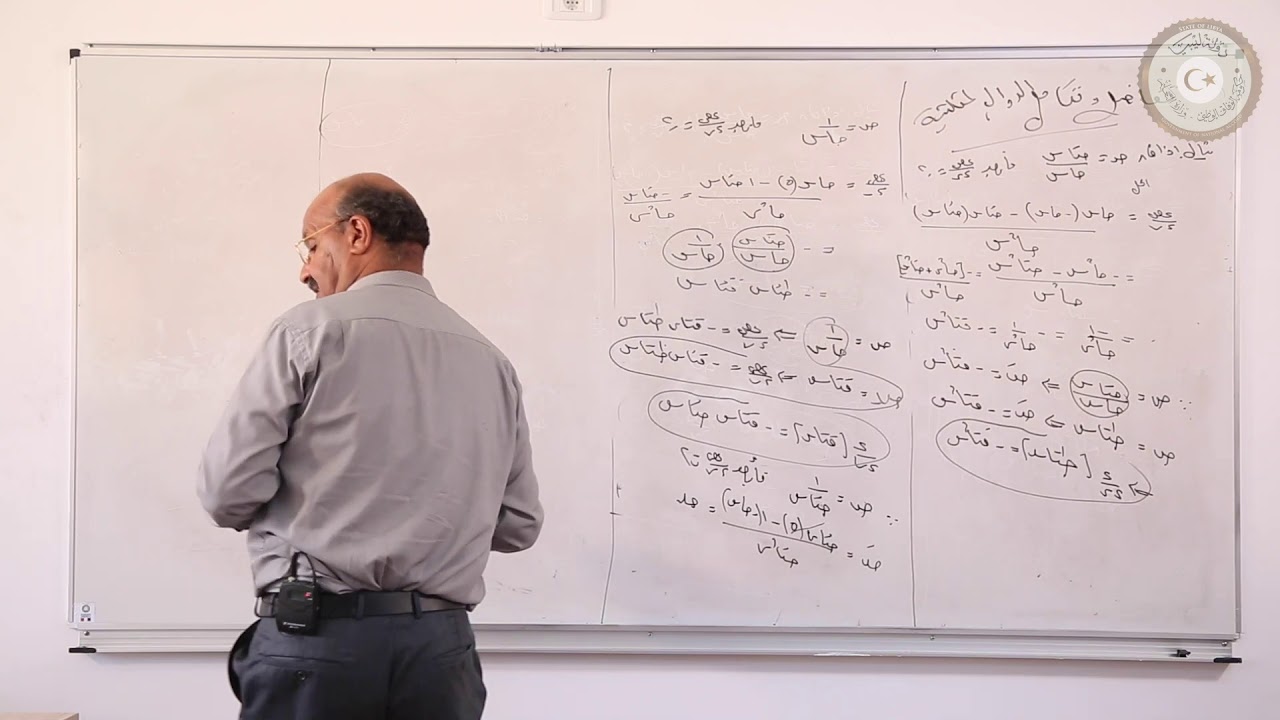 تفاضل وتكامل الدوال المثلثية
مثال: إذا كان ص = جتاس/جاس فأوجد ءص/ءس = ؟
الحل
ءص/ءس = جاس(-جاس) - جتاس(جتاس) / جا²س
= -جا²س - جتا²س / جا²س = -[جا²س + جتا²س] / جا²س
= -1/جا²س = -1/جا²س = -قتا²س
∵ ص = جتاس/جاس ⇐ صَ = -قتا²س
ص = ظتاس ⇐ صَ = -قتا²س
⇐ ء/ءس [ظتاس] = -قتا²س
ص = 1/جاس فأوجد ءص/ءس = ؟
ءص/ءس = جاس(0) - 1 جتاس / جا²س = -جتاس/جا²س
= - جتاس/جاس · 1/جاس
= - ظتاس · قتاس
ص = 1/جاس ⇐ ءص/ءس = -قتاس ظتاس
ص = قتاس ⇐ ءص/ءس = -قتاس ظتاس
ء/ءس [قتاس] = -قتاس ظتاس
∵ ص = 1/جتاس فأوجد ءص/ءس = ؟
صَ = جتاس(0) - 1(-جاس) / جتا²س =
STATE OF LIBYA
دولة ليبيا